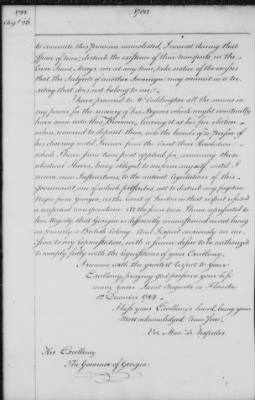 1788
Augt. 26.
1788
to evacuate this Province unmolested, I cannot during that
space of time, disturb the existence of these transports in the
River Saint Mary's nor at any time, take notice of the excesses
that the Subjects of another Sovereign may commit in a ter-
ritory that does not belong to me.
I have procured to Mr. Weddington all the means in
my power for the recovery of his Negroes which might eventually
have come into this Province, leaving it at his free election
when recovered to deposit them, into the hands of a Person of
his choosing until I receive from the Court their Resolution
which I have from time past applied for, concerning these
abducted Slaves, being obliged to conform myself until I
receive new Instructions, to the antient regulations of this
Government, one of which prohibits, not to disturb any fugitive
Negro from Georgia, as the Court of London in that respect refused
a reciprocal correspondence. At the same time I have represented to
His Majesty that Georgia is differently circumstanced now to being
as formerly a British Colony. And I expect anxiously an an-
swer to my representations, with a fervent desire to be authorized
to comply fully with the requisitions of your Excellency.
I remain with the greatest respect to your
Excellency praying God preserve your life
many years. Saint Augustin in Florida
December 1784
I kiss your Excellency's hand, being your
Most acknowledged Servt.
Vte. Man. de Zespedes
His Excellency
The Governor of Georgia